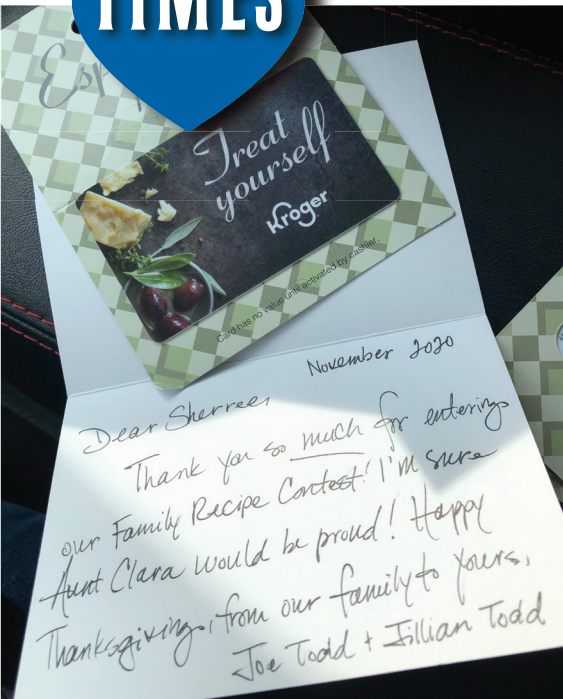 TIMES
Esp
Treat
yourself
Kroger
Card has no value until activated by cashier.
November 2020
Dear Sherree,
Thank you so much for entering
our Family Recipe Contest! I'm sure
Aunt Clara would be proud! Happy
Thanksgiving, from our family to yours,
Joe Todd + Jillian Todd